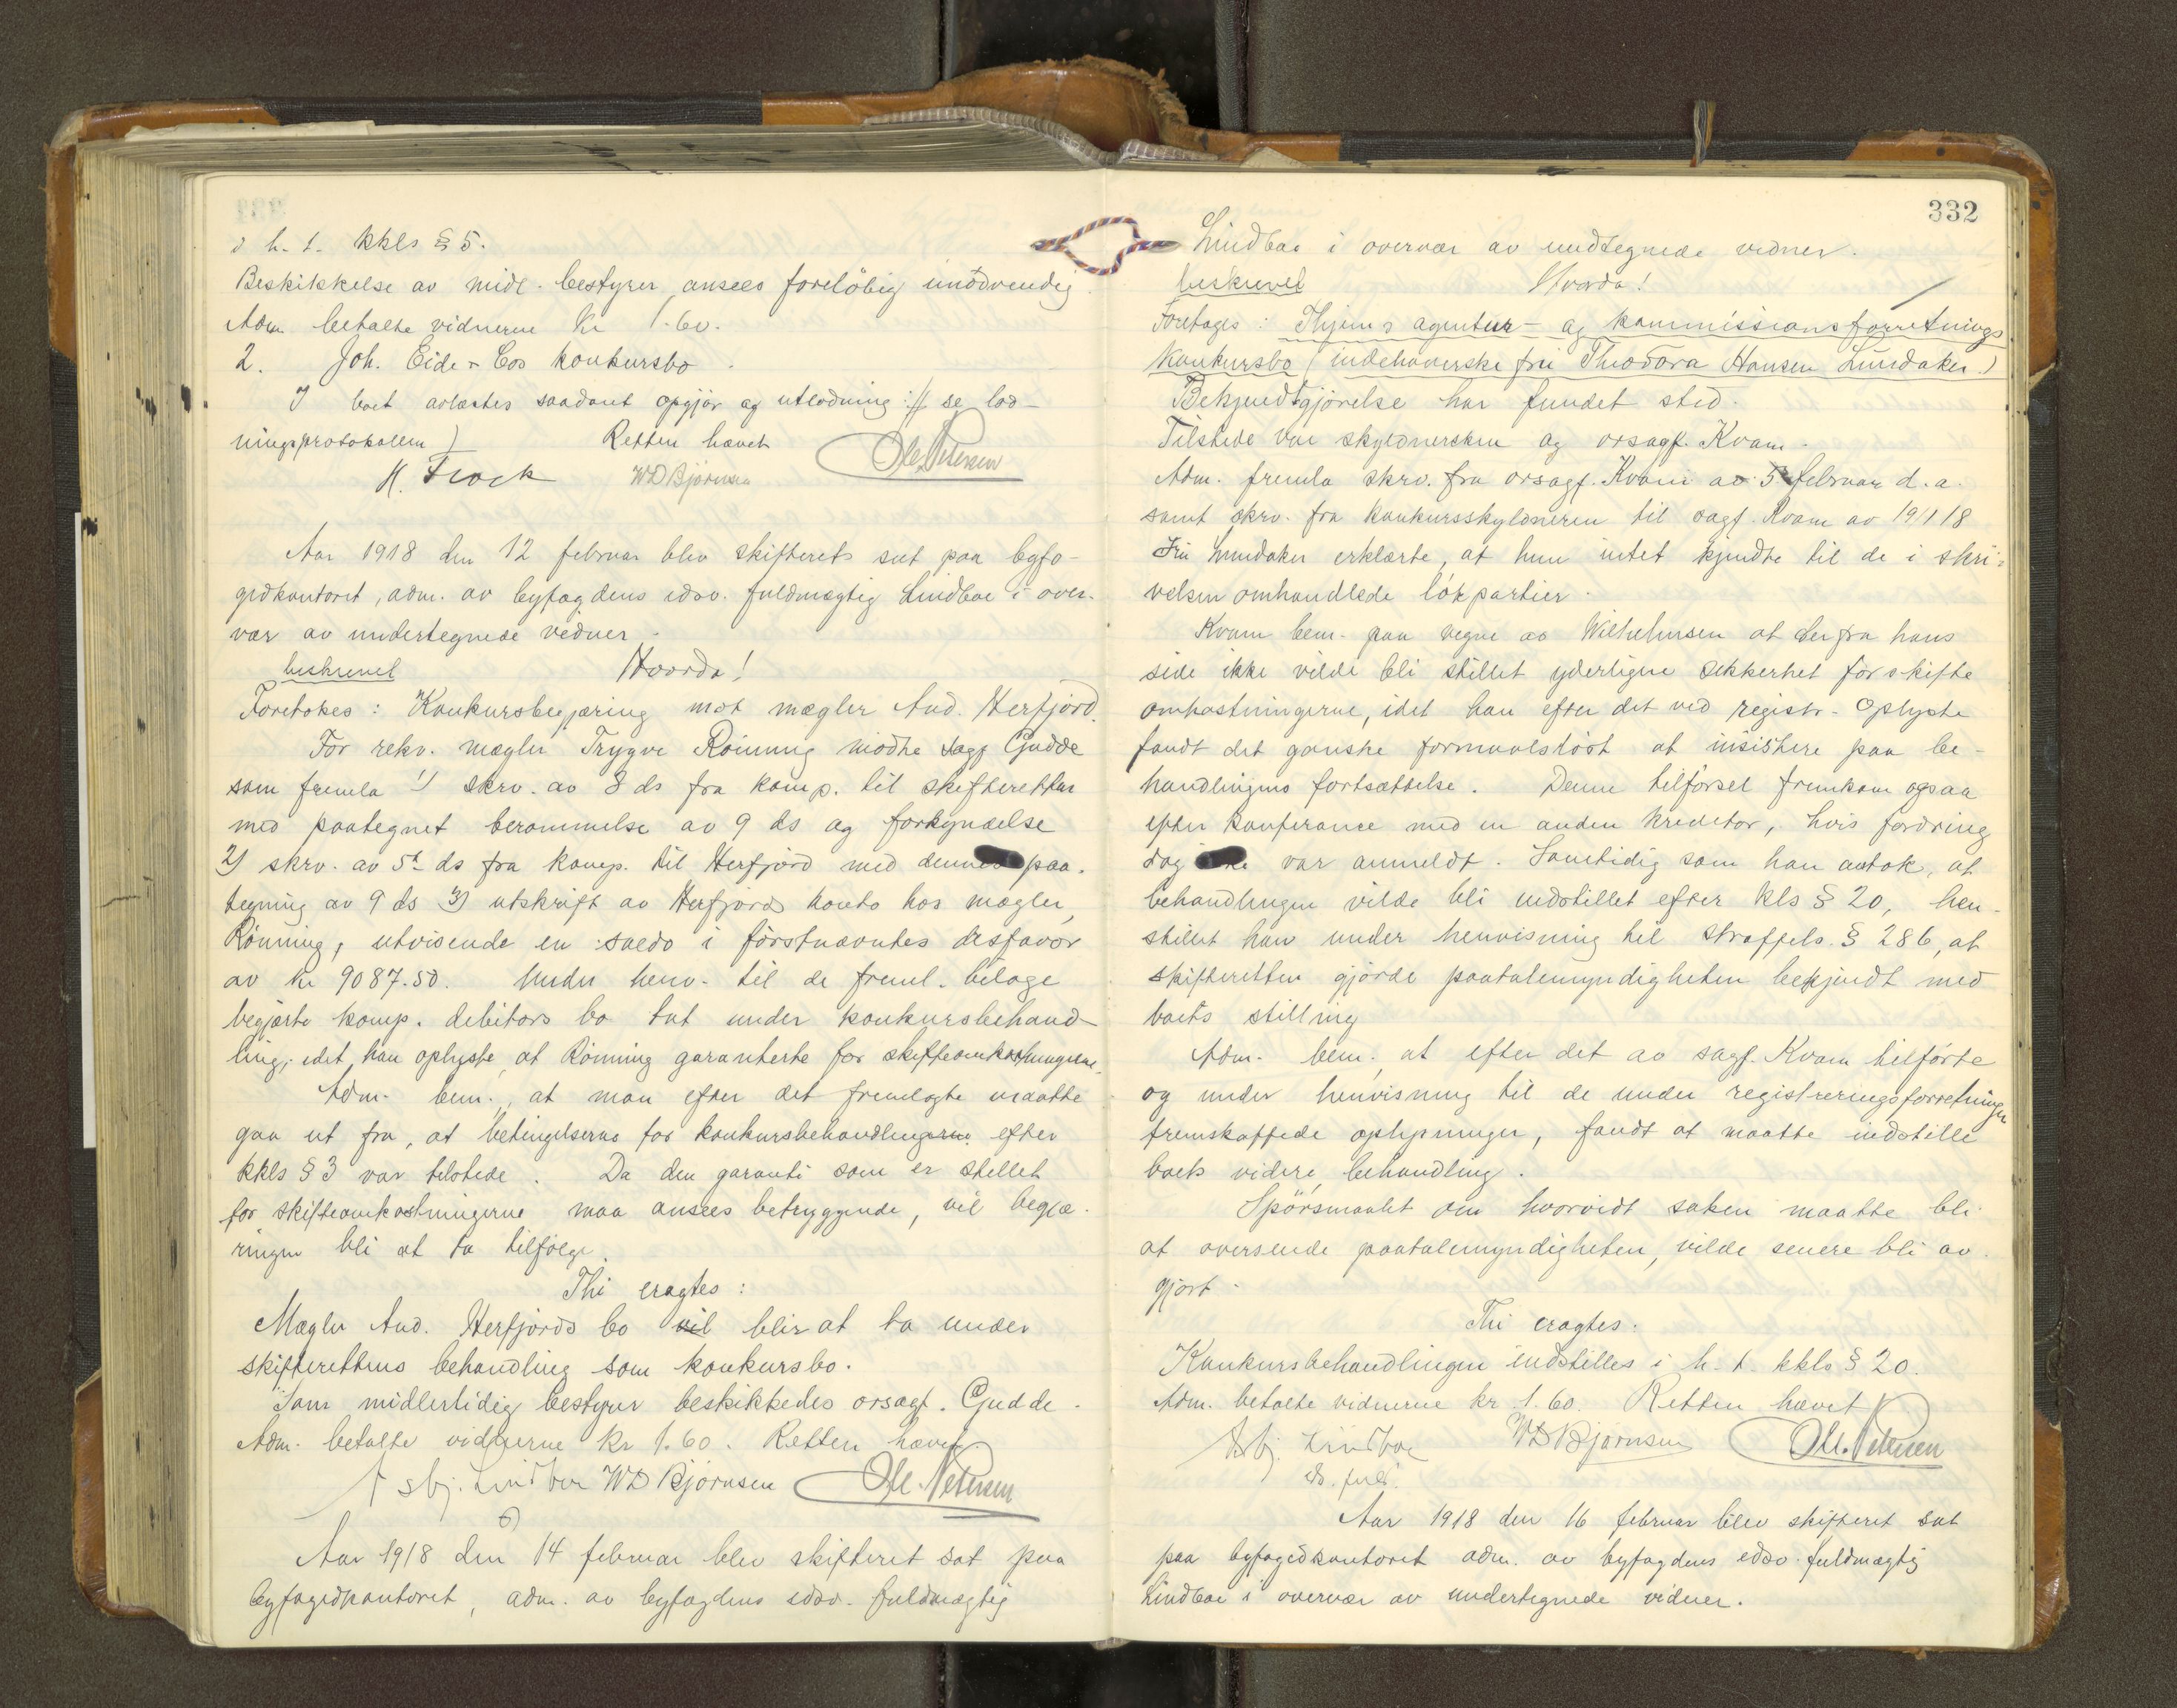 i h. t. kkls § 5.
Beskikkelse av midl. bestyrer ansees foreløbig unødvendig.
Adm. betalte vidnerne kr 1.60.
2. Joh. Eide & Cos konkursbo.
I boet avlastes saadant opgjør og utlodning :// se lod-
ningsprotokollen) Retten hævet
H. Frock WD Bjørnsen Ole Petersen
Aar 1918 den 12 februar blev skifteret sat paa byfo-
gedkontoret, adm. av byfogdens edsv. fuldmægtig Lindboe i over-
vær av undertegnede vidner.
beskrevet Hvorda!
Foretokes: Konkursbegjæring mot mægler And. Herfjord.
For rekv. mægler Trygve Rönning mødte sagf Gudde
som fremla 1) skrv. av 8 ds fra komp. til skifteretten
med paategnet berammelse av 9 ds og forkyndelse
2) skrv. av 5t ds fra komp. til Herfjord med dennes paa-
tegning av 9 ds 3) utskrift av Herfjords konto hos mægler
Rönning, utvisende en saldo i førstnævntes disfavor
av kr 9087.50. Under henv. til de freml. bilage
begjærte komp. debitors bo tat under konkursbehand-
ling, idet han oplyste, at Rönning garanterte for skifteomkostningerne.
Adm. bem., at man efter det fremlagte maatte
gaa ut fra, at betingelserne for konkursbehandlingen efter
kkls § 3 var tilstede. Da den garanti som er stillet
for skifteomkostningerne maa ansees betryggende, vil begjæ-
ringen bli at ta tilfølge.
Thi eragtes:
Mægler And. Herfjords bo vil blir at ta under
skifterettens behandling som konkursbo.
Som midlertidig bestyrer beskikkedes orsagf. Gudde.
Adm. betalte vidnerne kr 1.60. Retten hævet
Asbj. Lindboe WD Bjørnsen Ole Petersen
Aar 1918 den 14 februar blev skifteret sat paa
byfogedkontoret, adm. av byfogdens edsv. fuldmægtig
332
Lindboe i overvær av undtegnede vidner.
beskrevet Hvorda!
Foretoges: Thjems agentur- og kommissionsforretnings
konkursbo (indehaverske fru Theodora Hansen Lundaker.)
Bekjendtgjørelse har fundet sted.
Tilstede var skyldnersken og orsagf. Kvam.
Adm. fremla skrv. fra orsagf. Kvam av 5 februar d.a.
samt skrv. fra konkursskyldneren til sagf. Kvam av 19/1 18
Fru Lundaker erklærte, at hun intet kjendte til de i skri-
velsen omhandlede løkpartier.
Kvam bem. paa vegne av Wilhelmsen at der fra hans
side ikke vilde bli stillet yderligere sikkerhet for skifte
omkostningerne, idet han efter det ved registr. oplyste
fandt det ganske formaalsløst at insistere paa be-
handlingens fortsættelse. Denne tilførsel fremkom ogsaa
efter konferanse med en anden kreditor, hvis fordring
dog ikke var anmeldt. Samtidig som han antok, at
behandlingen vilde bli indstillet efter kls § 20, hen-
stillet han under henvisning til straffels. § 286, at
skifteretten gjørde paatalemyndigheten bekjendt med
boets stilling
Adm. bem. at efter det av sagf. Kvam tilførte
og under henvisning til de under registreringsforretningen
fremskaffede oplysninger, fandt at maatte indstille
boets videre behandling.
Spørsmaalet om hvorvidt saken maatte bli
at oversende paatalemyndigheten, vilde senere bli av-
gjort.
Thi eragtes:
Konkursbehandlingen indstilles i h. t. kkls § 20.
Adm. betalte vidnerne kr 1.60. Retten hævet
Asbj. Lindboe WD Bjørnsen Ole Petersen
ds. fuld.
Aar 1918 den 16 februar blev skifteret sat
paa byfogedkontoret adm. av byfogdens edsv. fuldmægtig
Lindboe i overvær av undertegnede vidner.